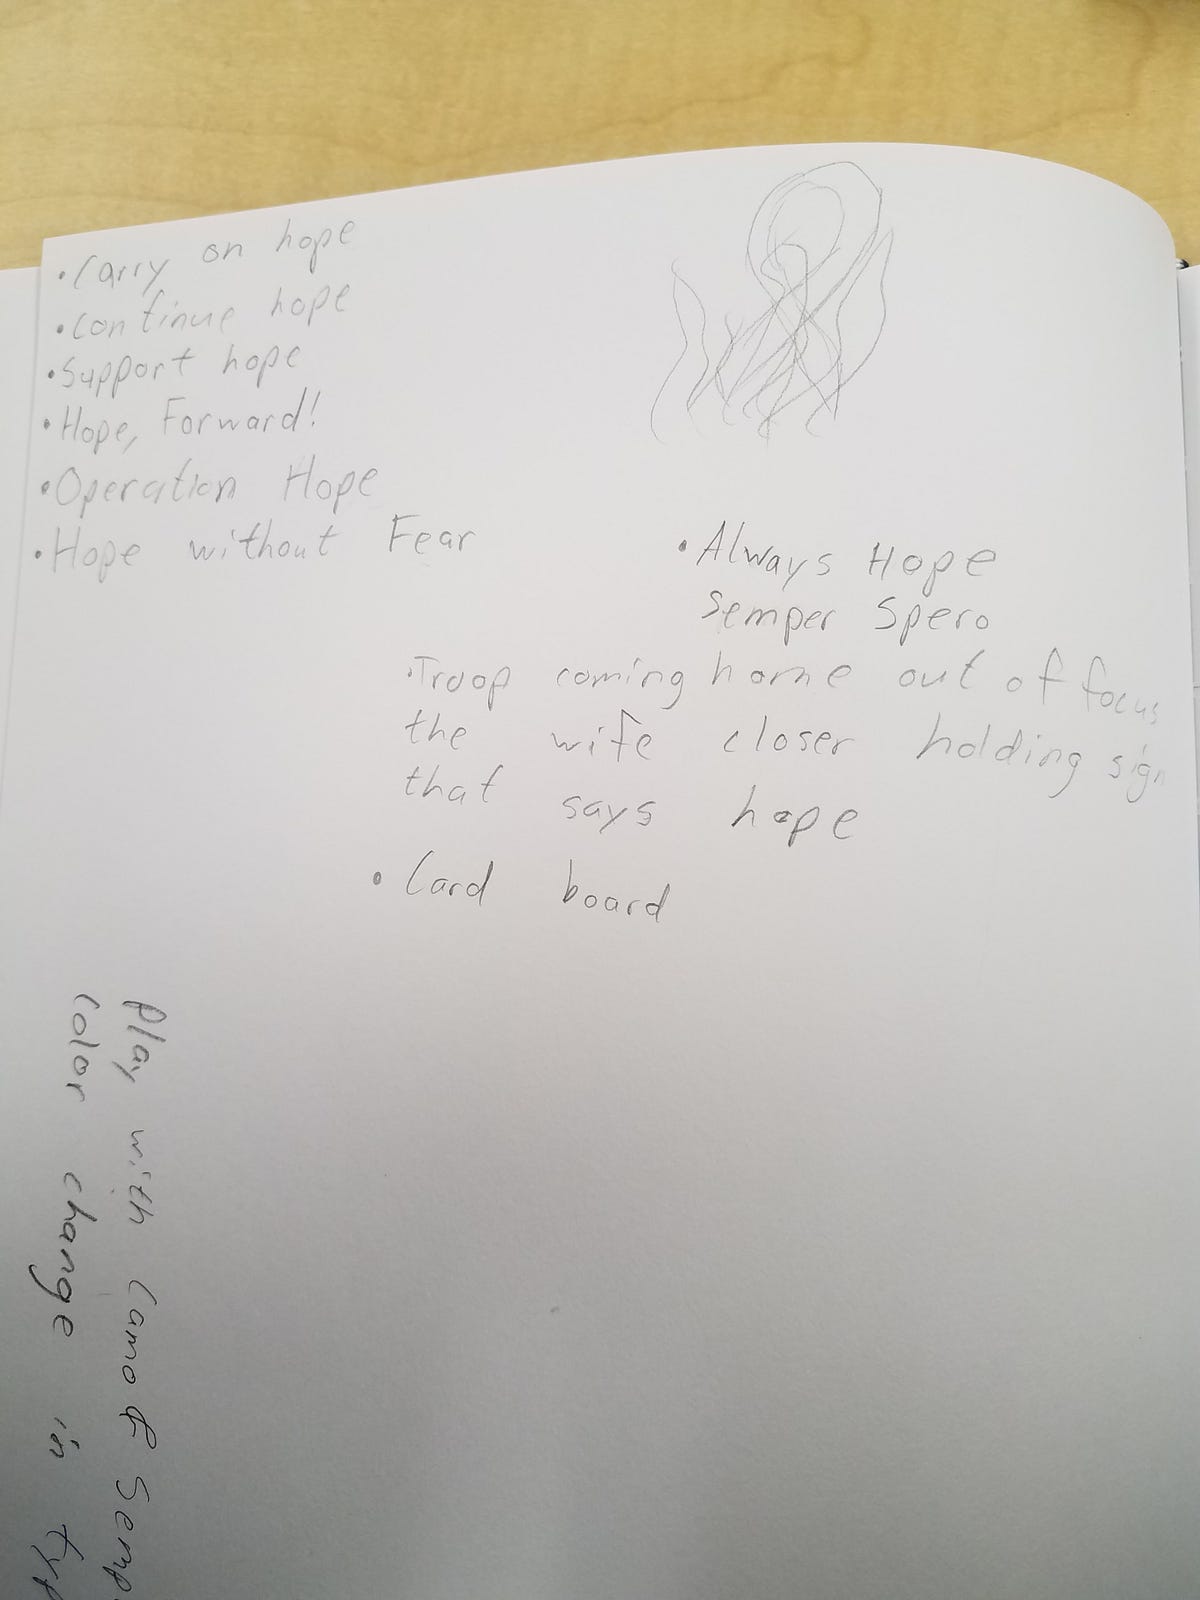 • Carry on hope
• continue hope
• Support hope
• Hope, Forward!
• Operation Hope
• Hope without Fear
• Always Hope
Semper Spero
• Troop coming home out of focus
the wife closer holding sign
that says hope
• Card board
Play with Camo & Semp
color change in typ